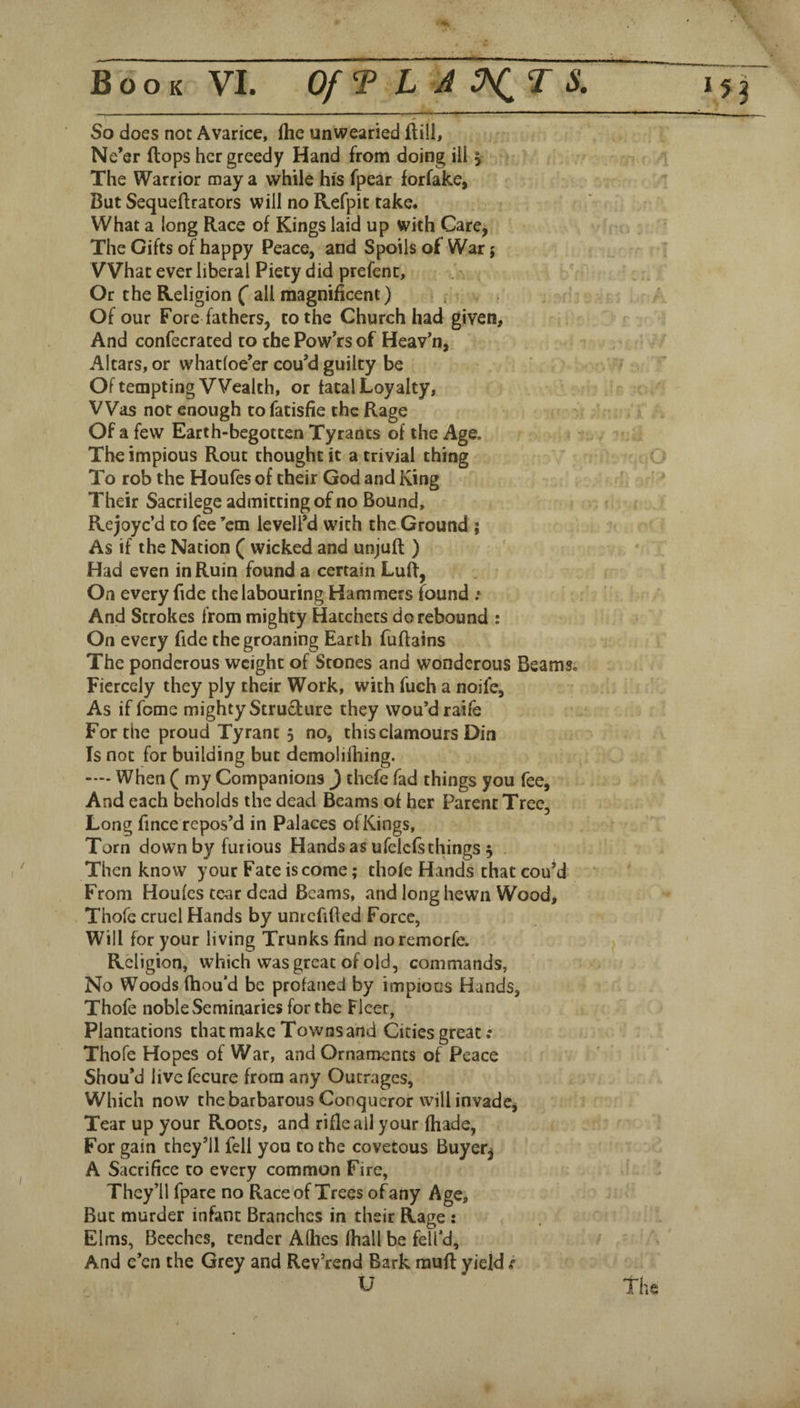 Book VI. Of PLANTS. 153
So does not Avarice, ſhe unwearied ſtill,
Ne'er ſtops her greedy Hand from doing ill;
The Warrior may a while his ſpear forſake,
But Sequeſtrators will no Reſpit take.
What a long Race of Kings laid up with Care,
The Gifts of happy Peace, and Spoils of War;
VVhat ever liberal Piety did preſent,
Or the Religion (all magnificent)
Of our Fore fathers, to the Church had given,
And conſecrated to the Pow'rs of Heav'n,
Altars, or whatſoe'er cou'd guilty be
Of tempting VVealth, or fatal Loyalty,
VVas not enough to ſatisfie the Rage
Of a few Earth-begotten Tyrants of the Age.
The impious Rout thought it a trivial thing
To rob the Houſes of their God and King
Their Sacrilege admitting of no Bound,
Rejoyc'd to ſee 'em levell'd with the Ground;
As if the Nation (wicked and unjuſt)
Had even in Ruin found a certain Luſt,
On every ſide the labouring Hammers ſound:
And Strokes from mighty Hatchets do rebound:
On every ſide the groaning Earth ſuſtains
The ponderous weight of Stones and wonderous Beams.
Fiercely they ply their Work, with ſuch a noiſe,
As if ſome mighty Structure they wou'd raiſe
For the proud Tyrant; no, this clamours Din
Is not for building but demoliſhing.
---- When (my Companions) theſe ſad things you ſee,
And each beholds the dead Beams of her Parent Tree,
Long ſince repos'd in Palaces of Kings,
Torn down by furious Hands as uſeleſs things;
Then know your Fate is come; thoſe Hands that cou'd
From Houſes tear dead Beams, and long hewn Wood,
Thoſe cruel Hands by unreſiſted Force,
Will for your living Trunks find no remorſe.
Religion, which was great of old, commands,
No Woods ſhou'd be profaned by impious Hands,
Thoſe noble Seminaries for the Fleet,
Plantations that make Towns and Cities great:
Thoſe Hopes of War, and Ornaments of Peace
Shou'd live ſecure from any Outrages,
Which now the barbarous Conqueror will invade,
Tear up your Roots, and rifle all your ſhade,
For gain they'll ſell you to the covetous Buyer,
A Sacrifice to every common Fire,
They'll ſpare no Race of Trees of any Age,
But murder infant Branches in their Rage:
Elms, Beeches, tender Aſhes ſhall be fell'd,
And e'en the Grey and Rev'rend Bark muſt yield:
U The